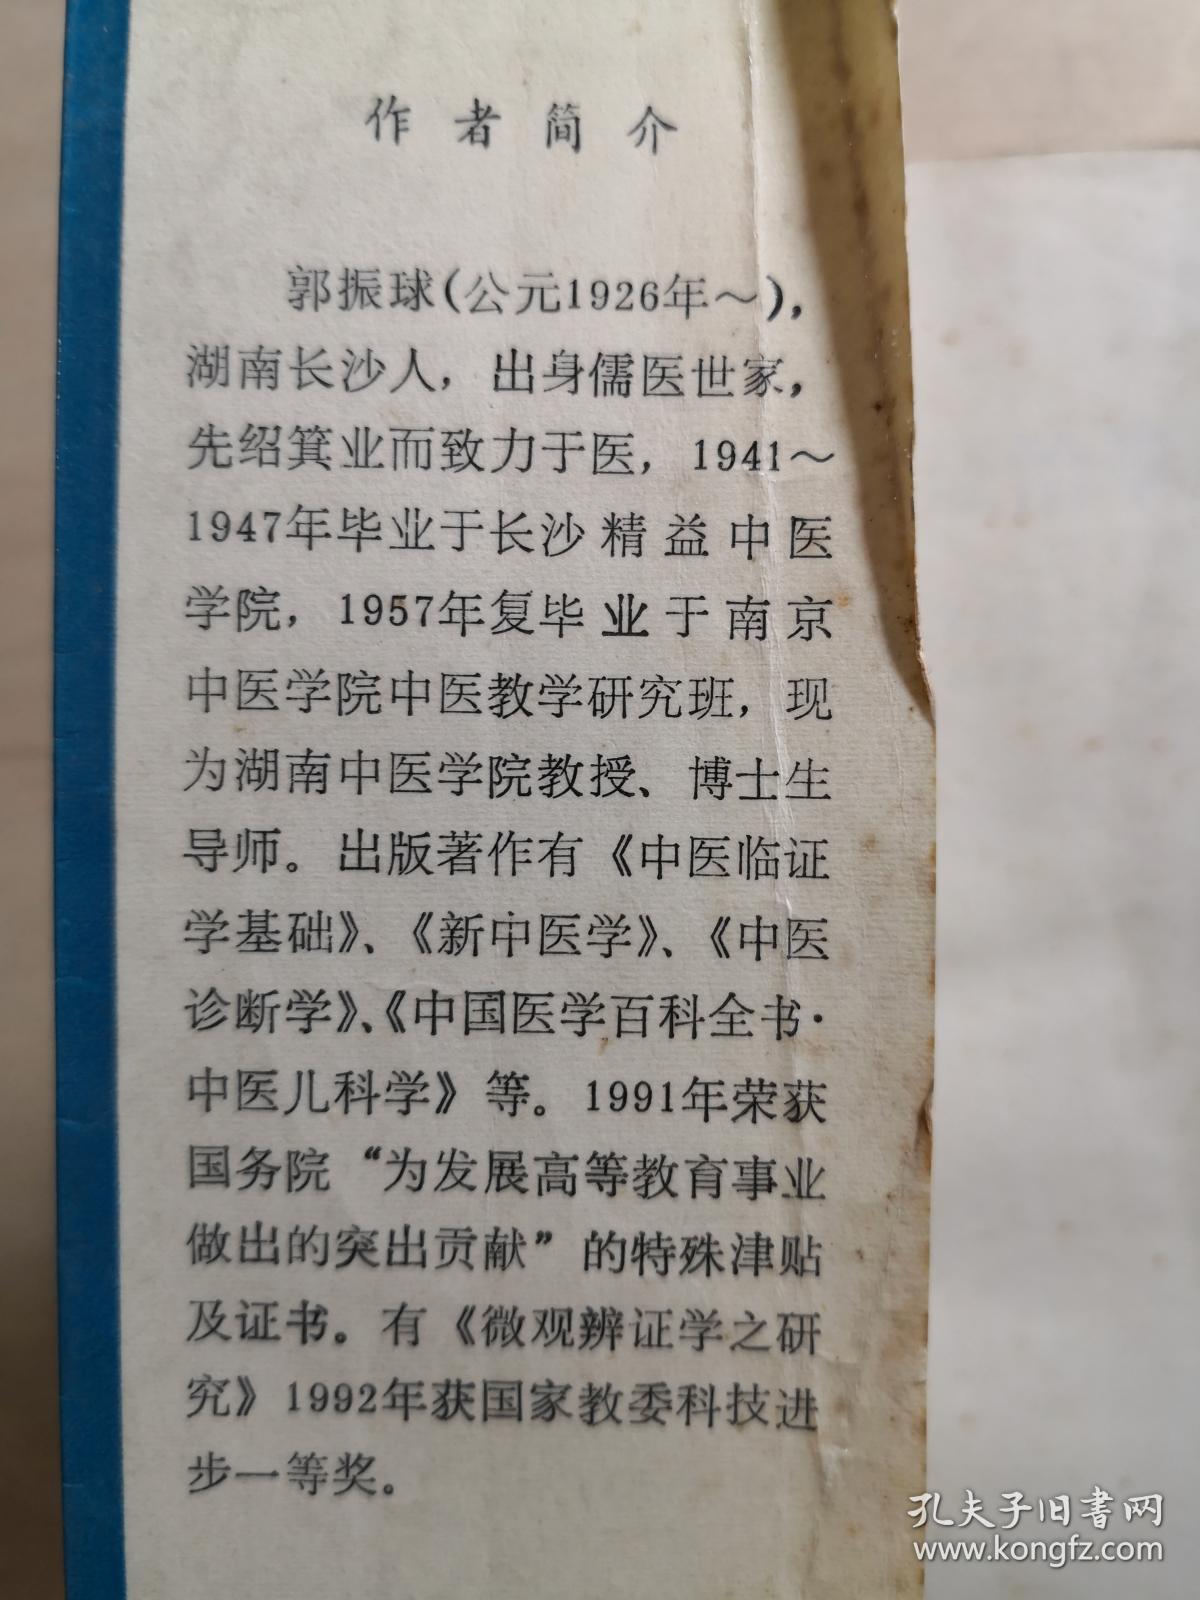 作者简介
郭振球(公元1926年～),
湖南长沙人，出身儒医世家，
先绍箕业而致力于医，1941～
1947年毕业于长沙精益中医
学院，1957年复毕业于南京
中医学院中医教学研究班，现
为湖南中医学院教授、博士生
导师。出版著作有《中医临证
学基础》、《新中医学》、《中医
诊断学》、《中国医学百科全书·
中医儿科学》等。1991年荣获
国务院“为发展高等教育事业
做出的突出贡献”的特殊津贴
及证书。有《微观辨证学之研
究》1992年获国家教委科技进
步一等奖。
孔夫子旧书网
www.kongfz.com